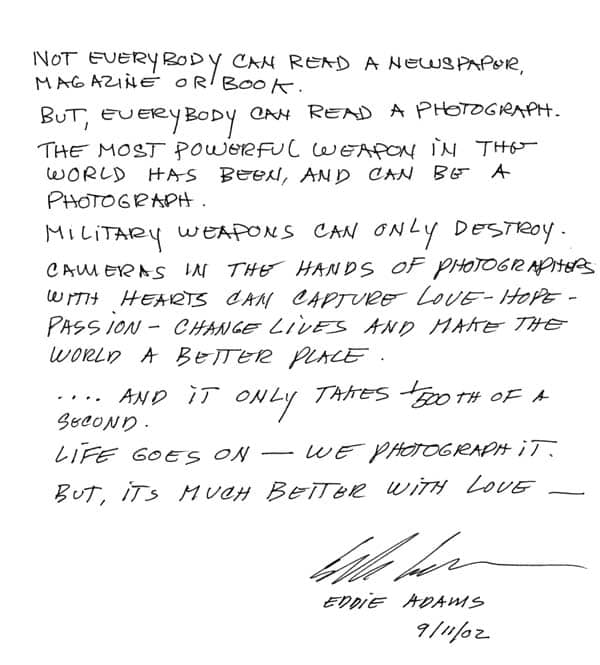 NOT EVERYBODY CAN READ A NEWSPAPER,
MAGAZINE OR BOOK.
BUT, EVERYBODY CAN READ A PHOTOGRAPH.
THE MOST POWERFUL WEAPON IN THE
WORLD HAS BEEN, AND CAN BE A
PHOTOGRAPH.
MILITARY WEAPONS CAN ONLY DESTROY.
CAMERAS IN THE HANDS OF PHOTOGRAPHERS
WITH HEARTS CAN CAPTURE LOVE - HOPE -
PASSION - CHANGE LIVES AND MAKE THE
WORLD A BETTER PLACE.
.... AND IT ONLY TAKES 1/500 TH OF A
SECOND.
LIFE GOES ON — WE PHOTOGRAPH IT.
BUT, ITS MUCH BETTER WITH LOVE —
EDDIE ADAMS
9/11/02